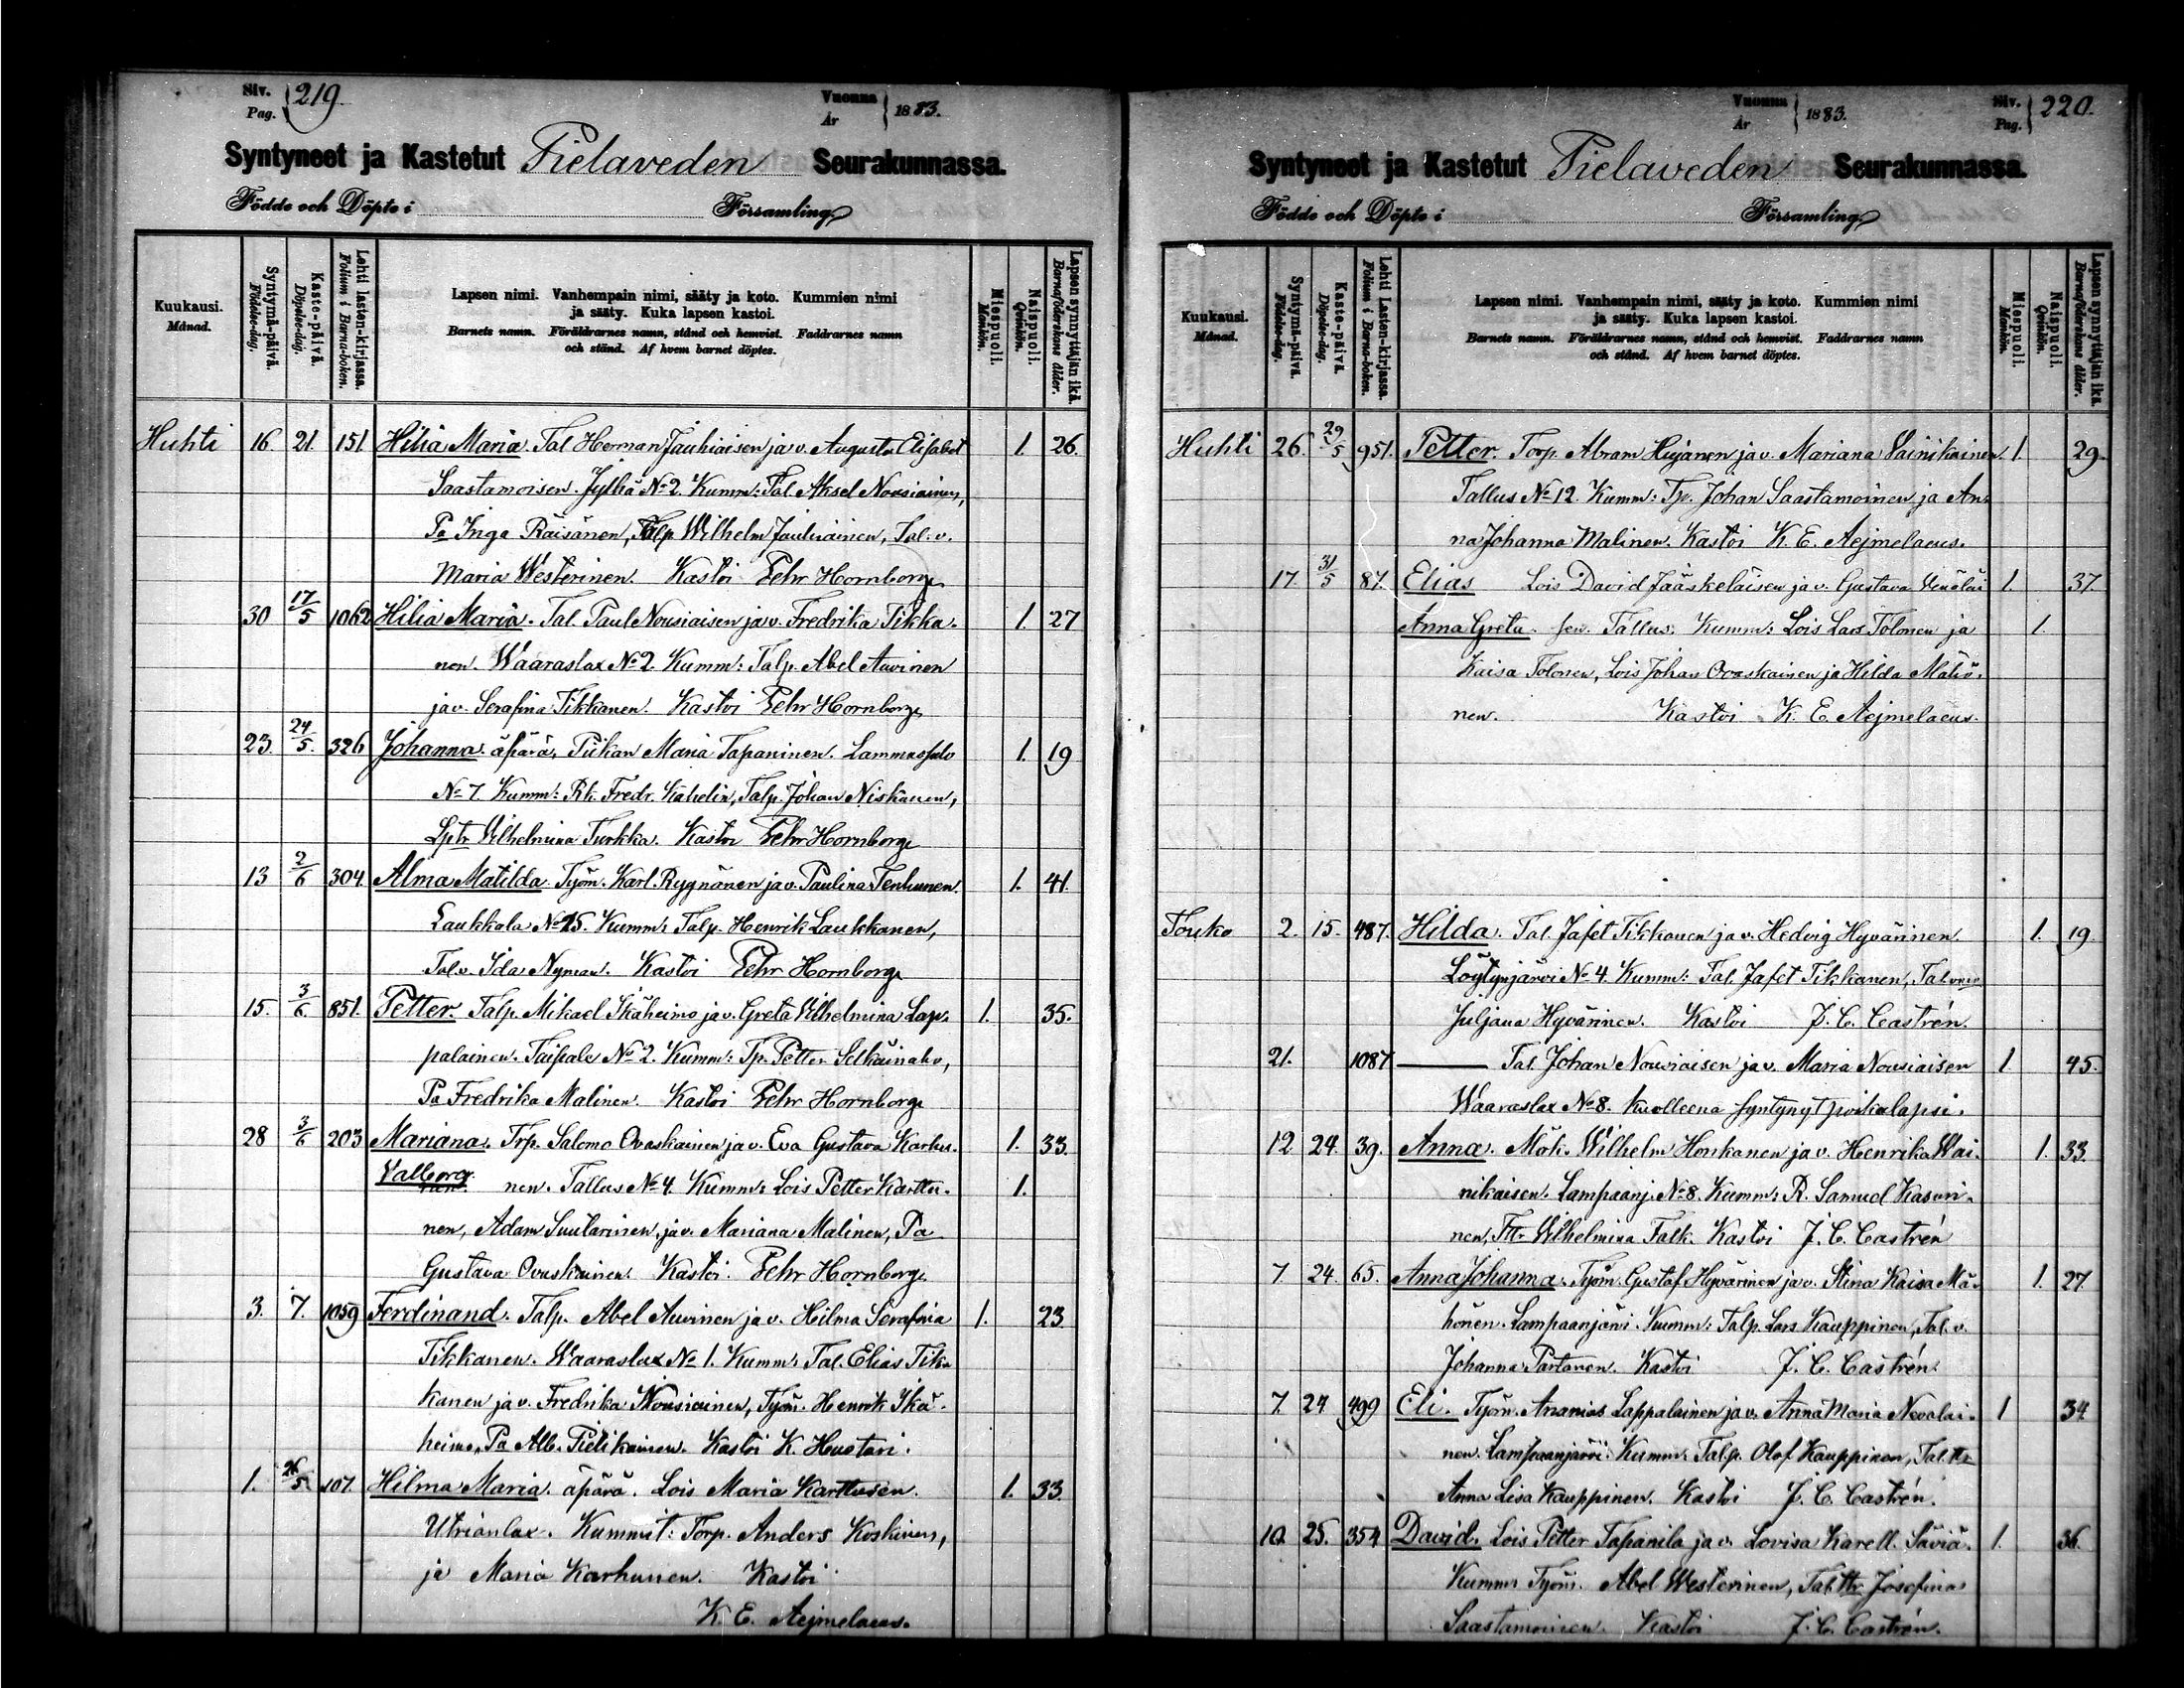 Siv. Pag. 219. Vuonna År 1883.
Syntyneet ja Kastetut Pielaveden Seurakunnassa.
Födde och Döpte i Församling.
Kuukausi. Månad.
Syntymä-päivä. Födelse-dag.
Kaste-päivä. Döpelse-dag.
Lehti lasten-kirjassa. Folium i Barna-boken.
Lapsen nimi. Vanhempain nimi, sääty ja koto. Kummien nimi
ja sääty. Kuka lapsen kastoi.
Barnets namn. Föräldrarnes namn, stånd och hemvist. Faddrarnes namn
och stånd. Af hvem barnet döptes.
Miespuoli. Mankön.
Naispuoli. Qvinkön.
Lapsen synnyttäjän ikä. Barnaföderskans ålder.
Huhti 16. 21. 151 Hilia Maria. Tal Herman Jauhiaisen ja v. Augusta Elisabet 1. 26.
Saastamoisen. Jylhä No 2. Kumm: Tal. Aksel Nousiainen,
Pa Inga Räisänen, Talp. Wilhelm Jauhiainen, Tal. v.
Maria Westerinen. Kastoi Pehr Hornborg
30 17/5 1062 Hilia Maria. Tal. Paul Nousiaisen ja v. Fredrika Tikka- 1. 27
nen. Waaraslax No 2. Kumm: Talp. Abel Auvinen
ja v. Serafina Tikkanen. Kastoi Pehr Hornborg
23. 24/5. 326 Johanna. äpärä, Piikan Maria Tapaninen. Lammassalo 1. 19
No 7. Kumm: Rk. Fredr. Kahelin, Talp. Johan Niskanen,
Lptr Wilhelmina Turkka. Kastoi Pehr Hornborg
13 2/6 304 Alma Matilda. Työm. Karl Rygnänen ja v. Paulina Tenhunen. 1. 41.
Laukkala No 15. Kumm: Talp. Henrik Laukkanen,
Tal v. Ida Nyman. Kastoi Pehr Hornborg
15. 3/6. 851. Petter. Talp. Mikael Ikäheimo ja v. Greta Wilhelmina Lap- 1. 35.
palainen. Taipale No 2. Kumm: Tp. Petter Selkäinaho,
Pa Fredrika Malinen. Kastoi Pehr Hornborg
28 3/6 203 Mariana. Trp. Salomo Ovaskainen ja v. Eva Gustava Karhu- 1. 33.
Valborg. nen. Tallus No 4. Kumm: Lois Petter Karttu- 1.
nen, Adam Suutarinen, ja v. Mariana Malinen, Pa
Gustava Ovaskainen. Kastoi. Pehr Hornborg.
3. 7. 1059 Ferdinand. Talp. Abel Auvinen ja v. Hilma Serafina 1. 23
Tikkanen. Waaraslax No 1. Kumm: Tal. Elias Tik-
kanen ja v. Fredrika Nousiainen, Työm. Henrik Ikä-
heimo, Pa Alb. Pietikäinen. Kastoi K. Hustari.
1. 26/5. 107. Hilma Maria. äpärä. Lois Maria Karttusen. 1. 33.
Utrianlax. Kummit: Torp. Anders Koskinen,
ja Maria Karhunen. Kastoi
K. E. Aejmelaeus.
Vuonna År 1883. Siv. Pag. 220.
Syntyneet ja Kastetut Pielaveden Seurakunnassa.
Födde och Döpte i Församling.
Kuukausi. Månad.
Syntymä-päivä. Födelse-dag.
Kaste-päivä. Döpelse-dag.
Lehti Lasten-kirjassa. Folium i Barna-boken.
Lapsen nimi. Vanhempain nimi, sääty ja koto. Kummien nimi
ja sääty. Kuka lapsen kastoi.
Barnets namn. Föräldrarnes namn, stånd och hemvist. Faddrarnes namn
och stånd. Af hvem barnet döptes.
Miespuoli. Mankön.
Naispuoli. Qvinkön.
Lapsen synnyttäjän ikä. Barnaföderskans ålder.
Huhti 26. 29/5 951. Petter. Torp. Abram Hujanen ja v. Mariana Vainikainen 1. 29
Tallus No 12. Kumm: Tp. Johan Saastamoinen ja An-
na Johanna Malinen. Kastoi K. E. Aejmelaeus.
17. 31/5 87. Elias Lois David Jääskeläisen ja v. Gustava Venäläi 1. 37.
Anna Greta. sen. Tallus. Kumm: Lois Lars Tolonen ja 1.
Kaisa Tolonen, Lois Johan Ovaskainen ja Hilda Mähö-
nen. Kastoi K. E. Aejmelaeus.
Touko 2. 15. 487. Hilda. Tal. Jafet Tikkanen ja v. Hedvig Hyvärinen. 1. 19.
Löytynjärvi No 4. Kumm: Tal. Jafet Tikkanen, Tal.
Juljana Hyvärinen. Kastoi J. C. Castrén.
21. 1087 Tal. Johan Nousiaisen ja v. Maria Nousiaisen 1. 45.
Waaraslax No 8. Kuolleena syntynyt poikalapsi.
12 24. 39. Anna. Mök. Wilhelm Honkanen ja v. Henrika Wai- 1. 33.
nikaisen. Lampaanj. No 8. Kumm: R. Samuel Kasuri-
nen, Ttr Wilhelmina Falk. Kastoi J. C. Castrén
7. 24. 65. Anna Johanna. Työm. Gustaf Hyvärinen ja v. Stina Kaisa Mä- 1. 27.
hönen. Lampaanjärvi. Kumm: Talp. Lars Kauppinen, Tal. v.
Johanna Partanen. Kastoi J. C. Castrén.
7. 24 499 Eli. Työm. Ananias Lappalainen ja v. Anna Maria Nevalai- 1 34
nen. Lampaanjärvi. Kumm. Talp. Olof Kauppinen, Tal. ttr
Anna Lisa Kauppinen. Kastoi J. C. Castrén.
10. 25. 354 David. Lois Petter Tapanila ja v. Lovisa Karell. Säviä. 1. 36.
Kumm: Työm. Abel Westerinen, Tal. ttr Josefina
Saastamoinen. Kastoi J. C. Castrén.